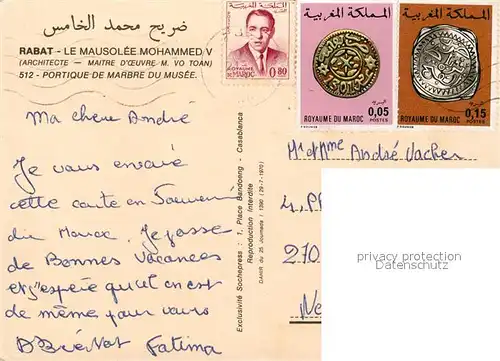 ضريح محمد الخامس
RABAT - LE MAUSOLÉE MOHAMMED V
(ARCHITECTE — MAITRE D'ŒUVRE M. VO TOAN)
512 - PORTIQUE DE MARBRE DU MUSÉE.
Ma chère André
Je vous envoie
cette carte en Souvenir
du Maroc. Je passe
de Bonnes Vacances
et j'espère qu'il en est
de même pour vous
Fatima
Exclusivité Sochepress : 1, Place Bandoeng - Casablanca
Reproduction Interdite
DAHIR du 25 Joumada I 1390 (29-7-1970)
المملكة المغربية
ROYAUME DU MAROC
0,80
المملكة المغربية
0,05
ROYAUME DU MAROC POSTES
المملكة المغربية
0,15
ROYAUME DU MAROC POSTES
Mr et Mme André Vacher
4,
270
privacy protection
Datenschutz